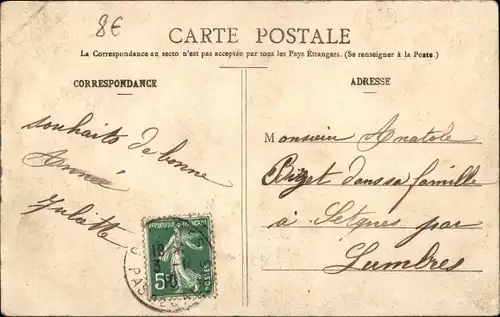 8€
CARTE POSTALE
La Correspondance au recto n'est pas acceptée par tous les Pays Étrangers. (Se renseigner à la Poste.)
CORRESPONDANCE
ADRESSE
souhaits de bonne
Année
Juliette
Monsieur Anatole
dans sa famille
à Setques par
Lumbres
REPUBLIQUE FRANÇAISE
POSTES
5c
PAS